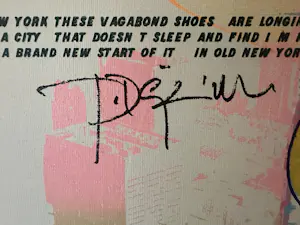 W YORK THESE VAGABOND SHOES ARE LONGIN
A CITY THAT DOESN T SLEEP AND FIND I M
A BRAND NEW START OF IT IN OLD NEW YOR